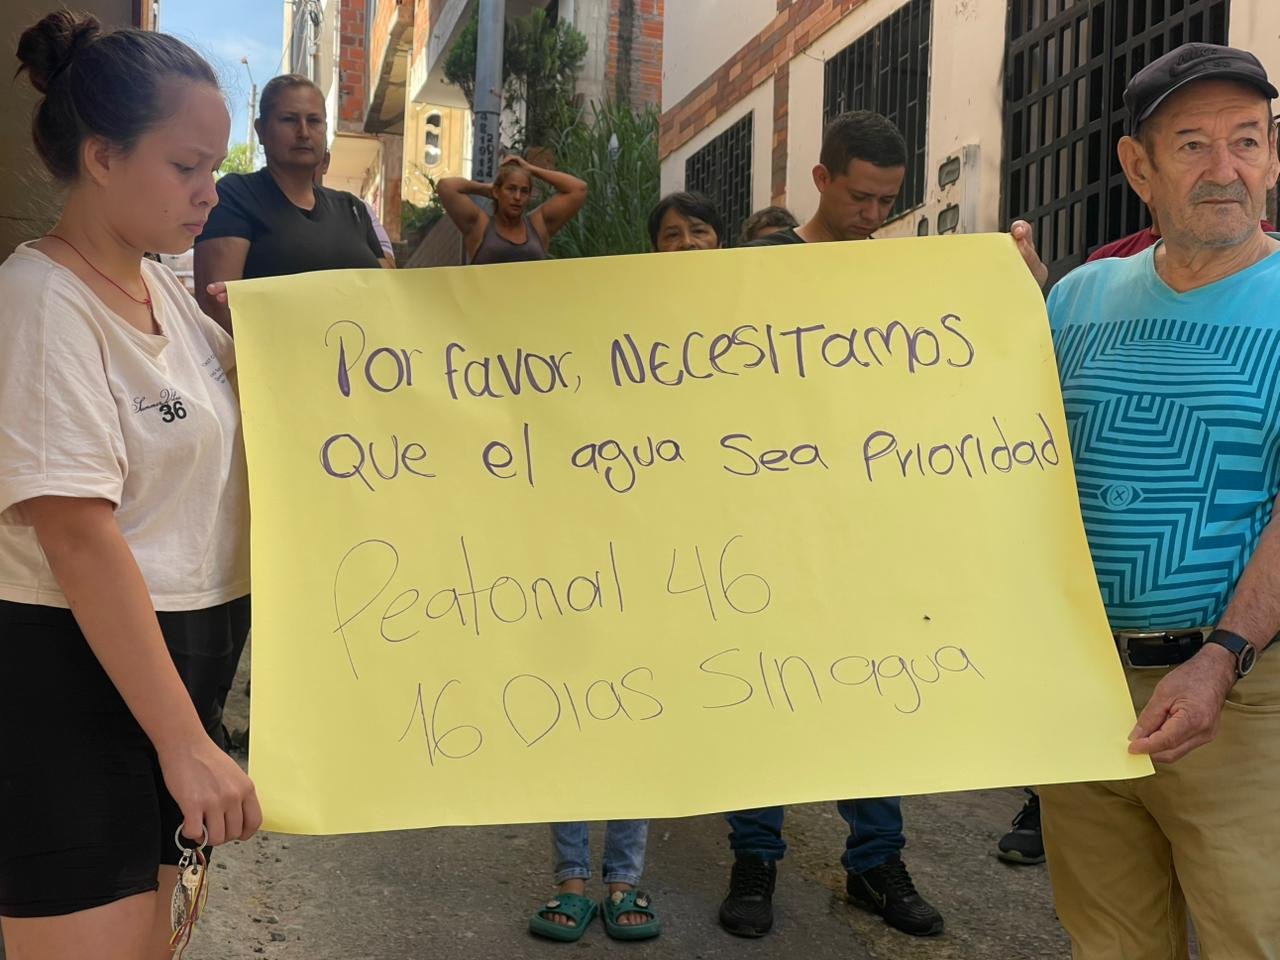 Por favor, NECESITAMOS
QUE el agua Sea Prioridad
Peatonal 46
16 DIAS SIN agua
36